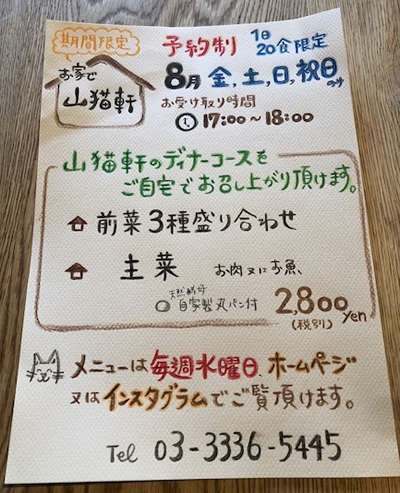 期間限定
予約制 1日20食限定
お家で
山猫軒
8月 金,土,日,祝日のみ
お受け取り時間
17:00~18:00
山猫軒のディナーコースを
ご自宅でお召し上がり頂けます。
前菜3種盛り合わせ
主菜 お肉又はお魚
天然酵母
自家製丸パン付
2,800yen
(税別)
メニューは毎週水曜日、ホームページ
又はインスタグラムでご覧頂けます。
Tel 03-3336-5445